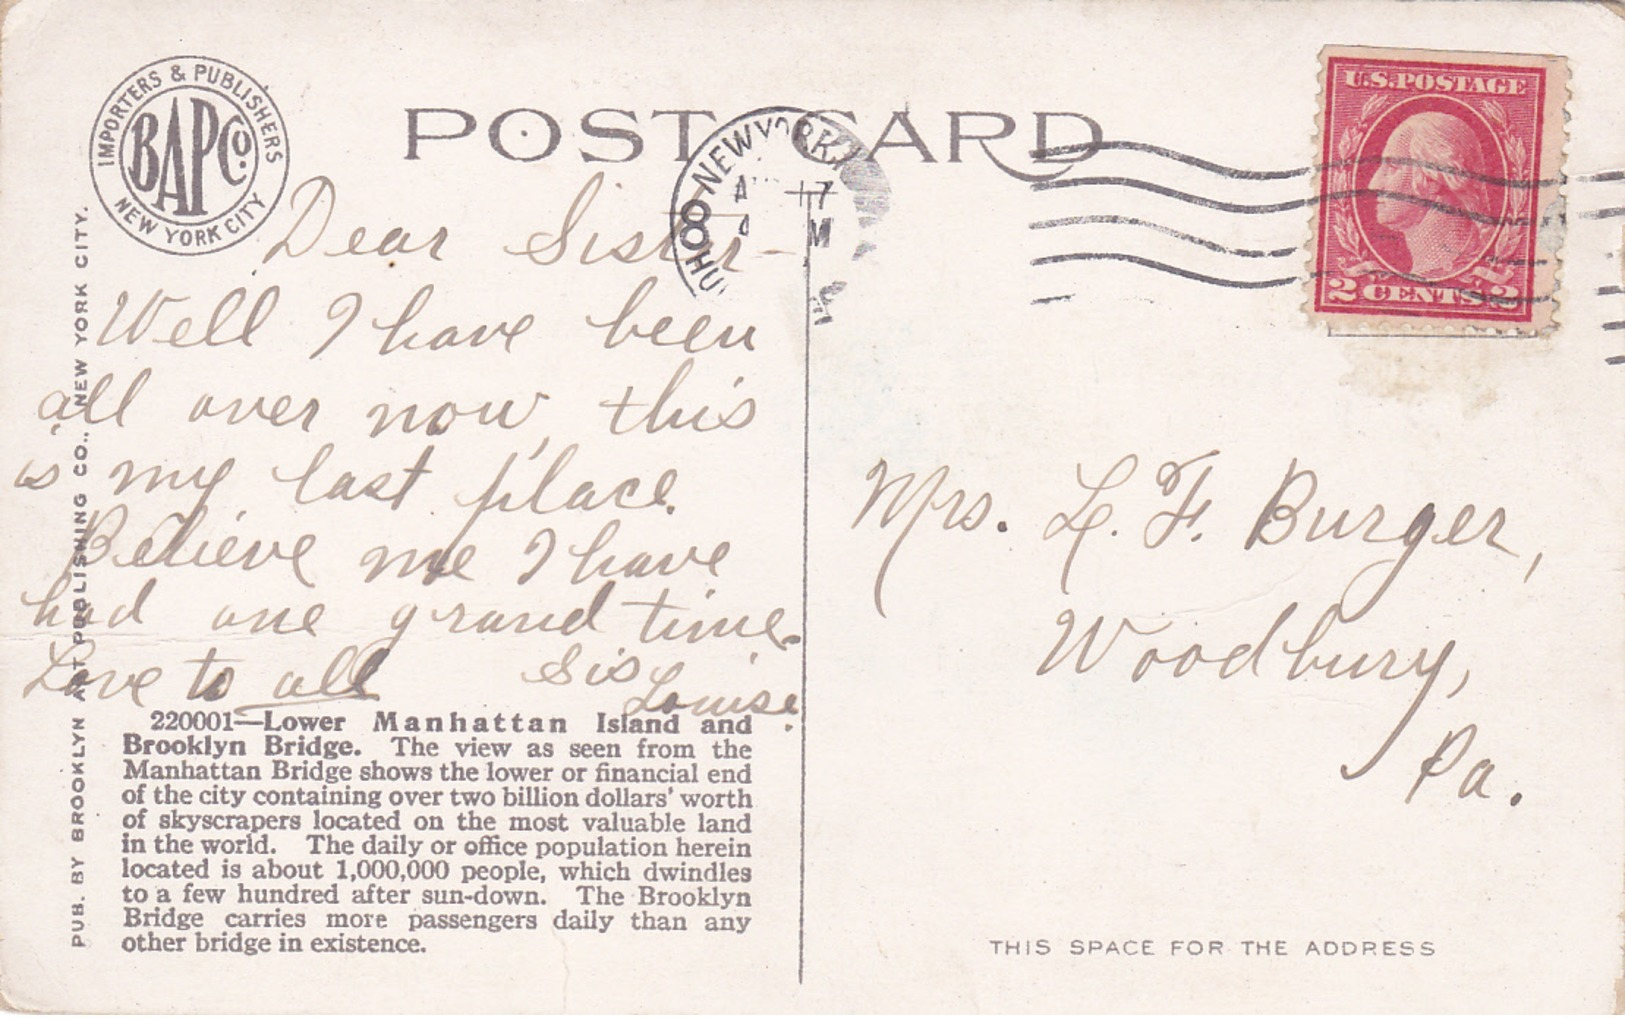 IMPORTERS & PUBLISHERS
BAPCo.
NEW YORK CITY
POST CARD
NEW YORK,
HOO
7
M
U.S. POSTAGE
2 CENTS 2
Dear Sister—
Well I have been
all over now, this
is my last place.
Believe me I have
had one grand time.
Love to all Sis
Louise.
Mrs. L. F. Burger,
Woodbury,
Pa.
220001—Lower Manhattan Island and
Brooklyn Bridge. The view as seen from the
Manhattan Bridge shows the lower or financial end
of the city containing over two billion dollars' worth
of skyscrapers located on the most valuable land
in the world. The daily or office population herein
located is about 1,000,000 people, which dwindles
to a few hundred after sun-down. The Brooklyn
Bridge carries more passengers daily than any
other bridge in existence.
PUB. BY BROOKLYN ART PUBLISHING CO., NEW YORK CITY.
THIS SPACE FOR THE ADDRESS